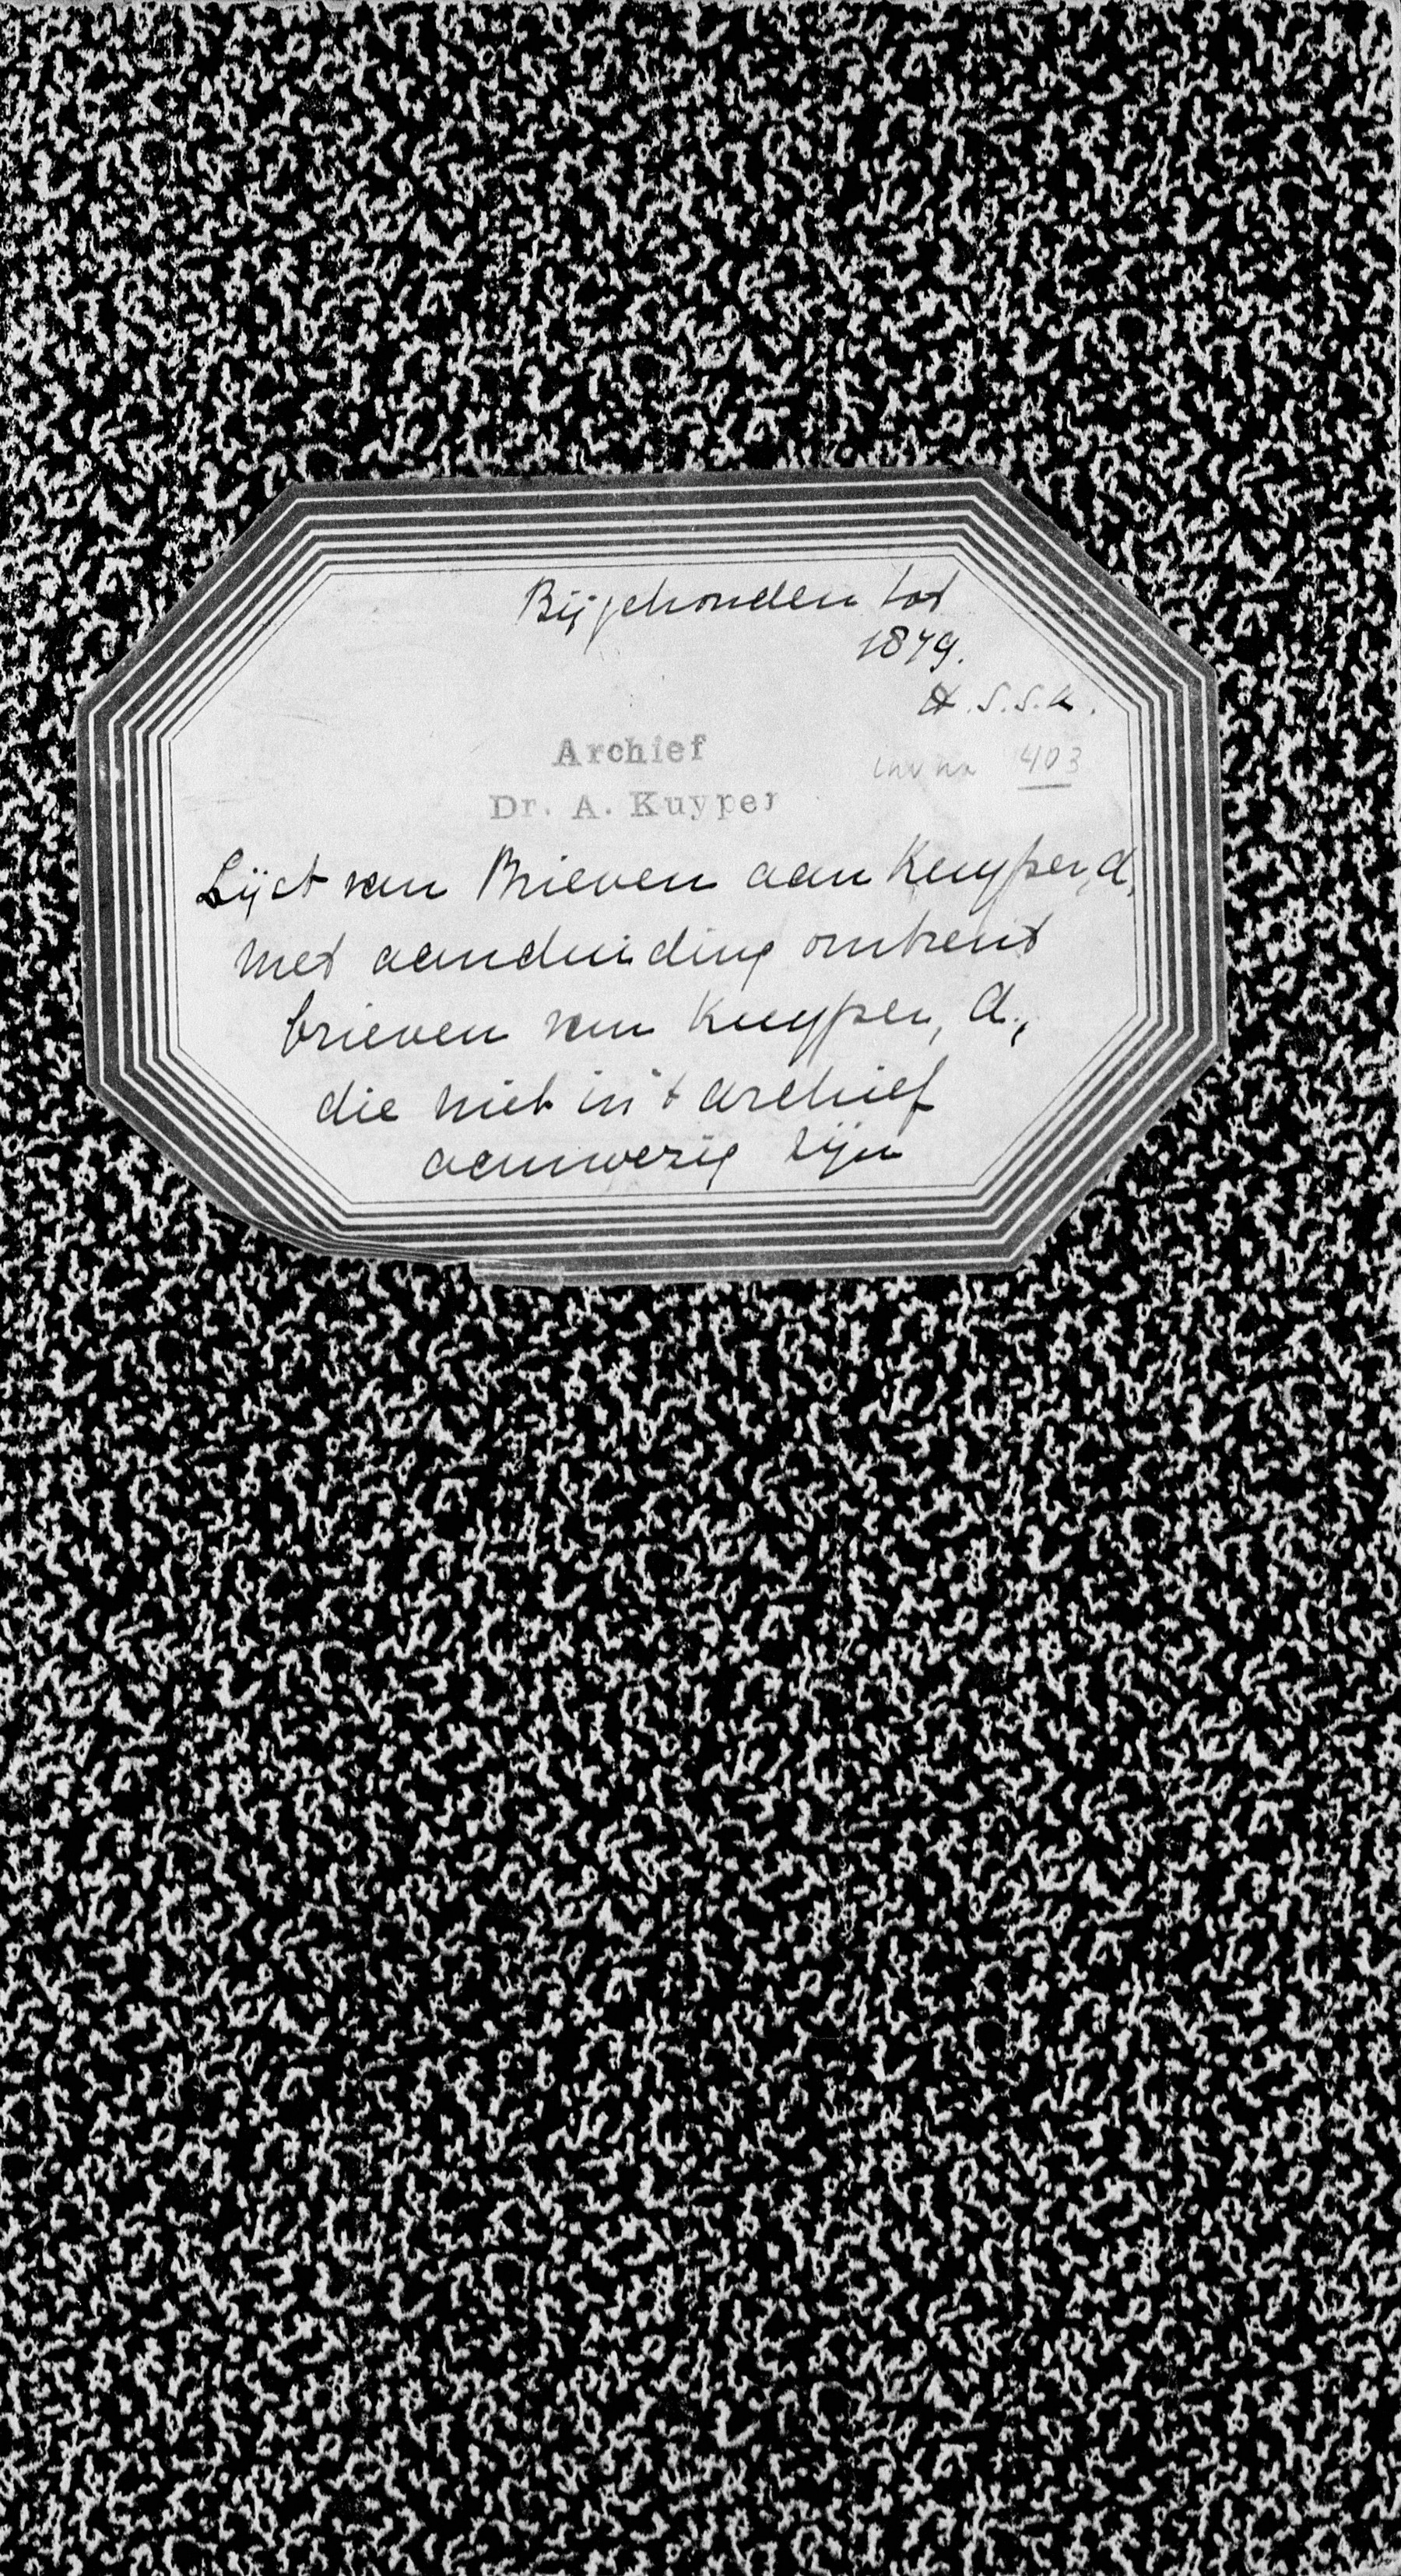 Bijgehouden tot
1879.
H.S.S.K.
Archief
inv no 403
Dr. A. Kuyper
Lijst van Brieven aan Kuyper, A.
met aanduiding omtrent
brieven van Kuyper, A.,
die niet in 't archief
aanwezig zijn